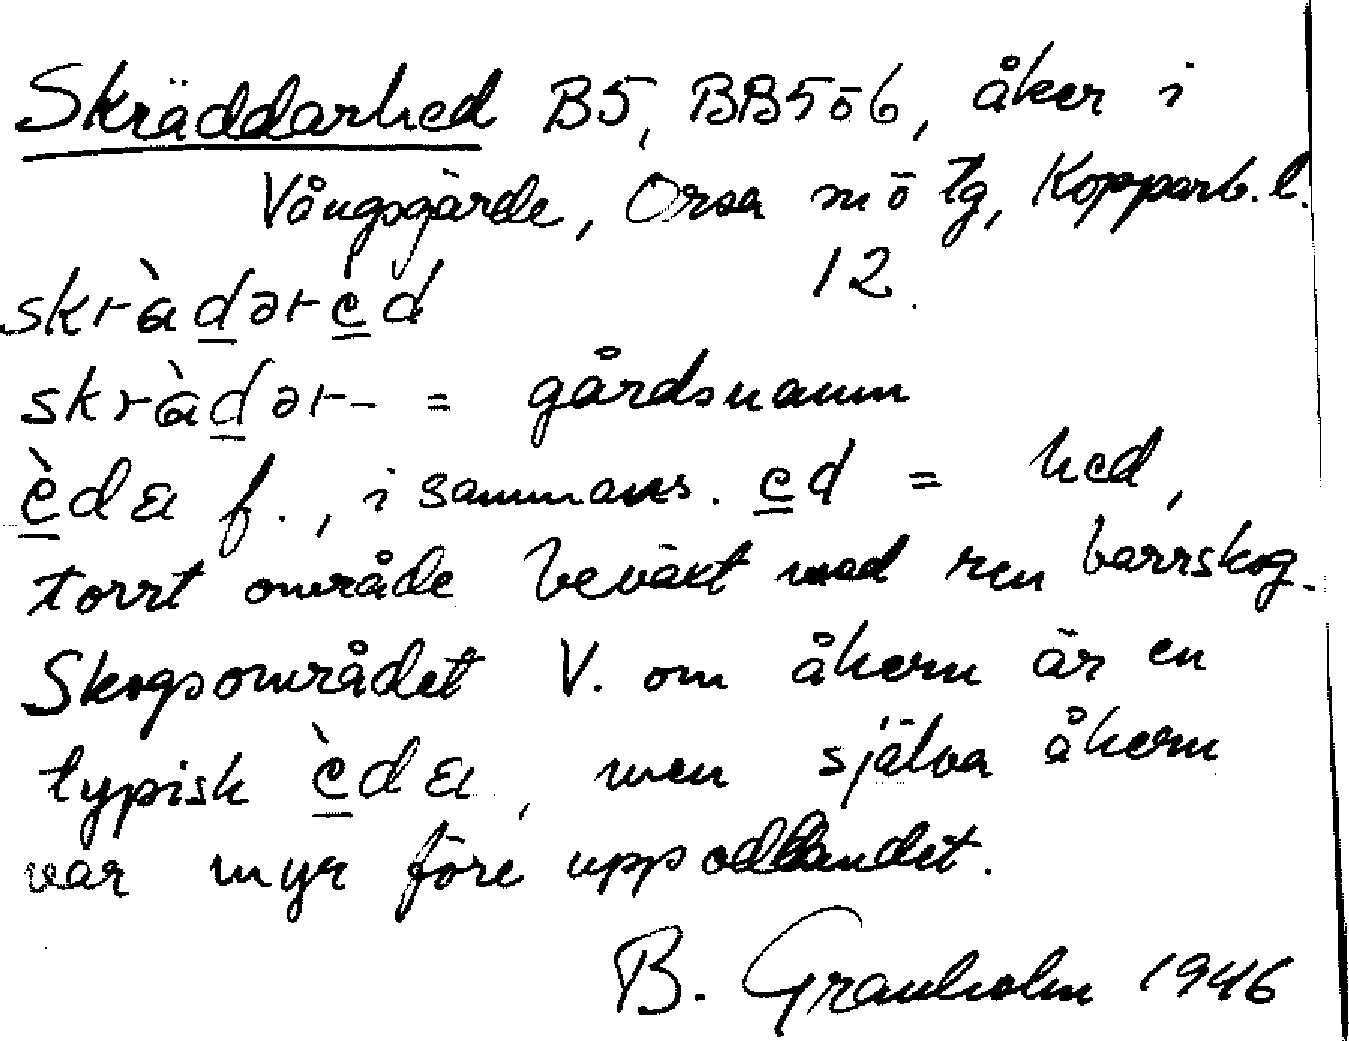 Skräddarhed B5, BB5ö6, åker i
Vångsgärde, Orsa sn ö tg, Kopparb. l.
12.
skràdəred
skràdər- = gårdsnamn
èda f., i sammans. ed = hed,
torrt område beväxt med ren barrskog.
Skogsområdet V. om åkern är en
typisk èda, men själva åkern
var myr före uppodlandet.
B. Granholm 1946